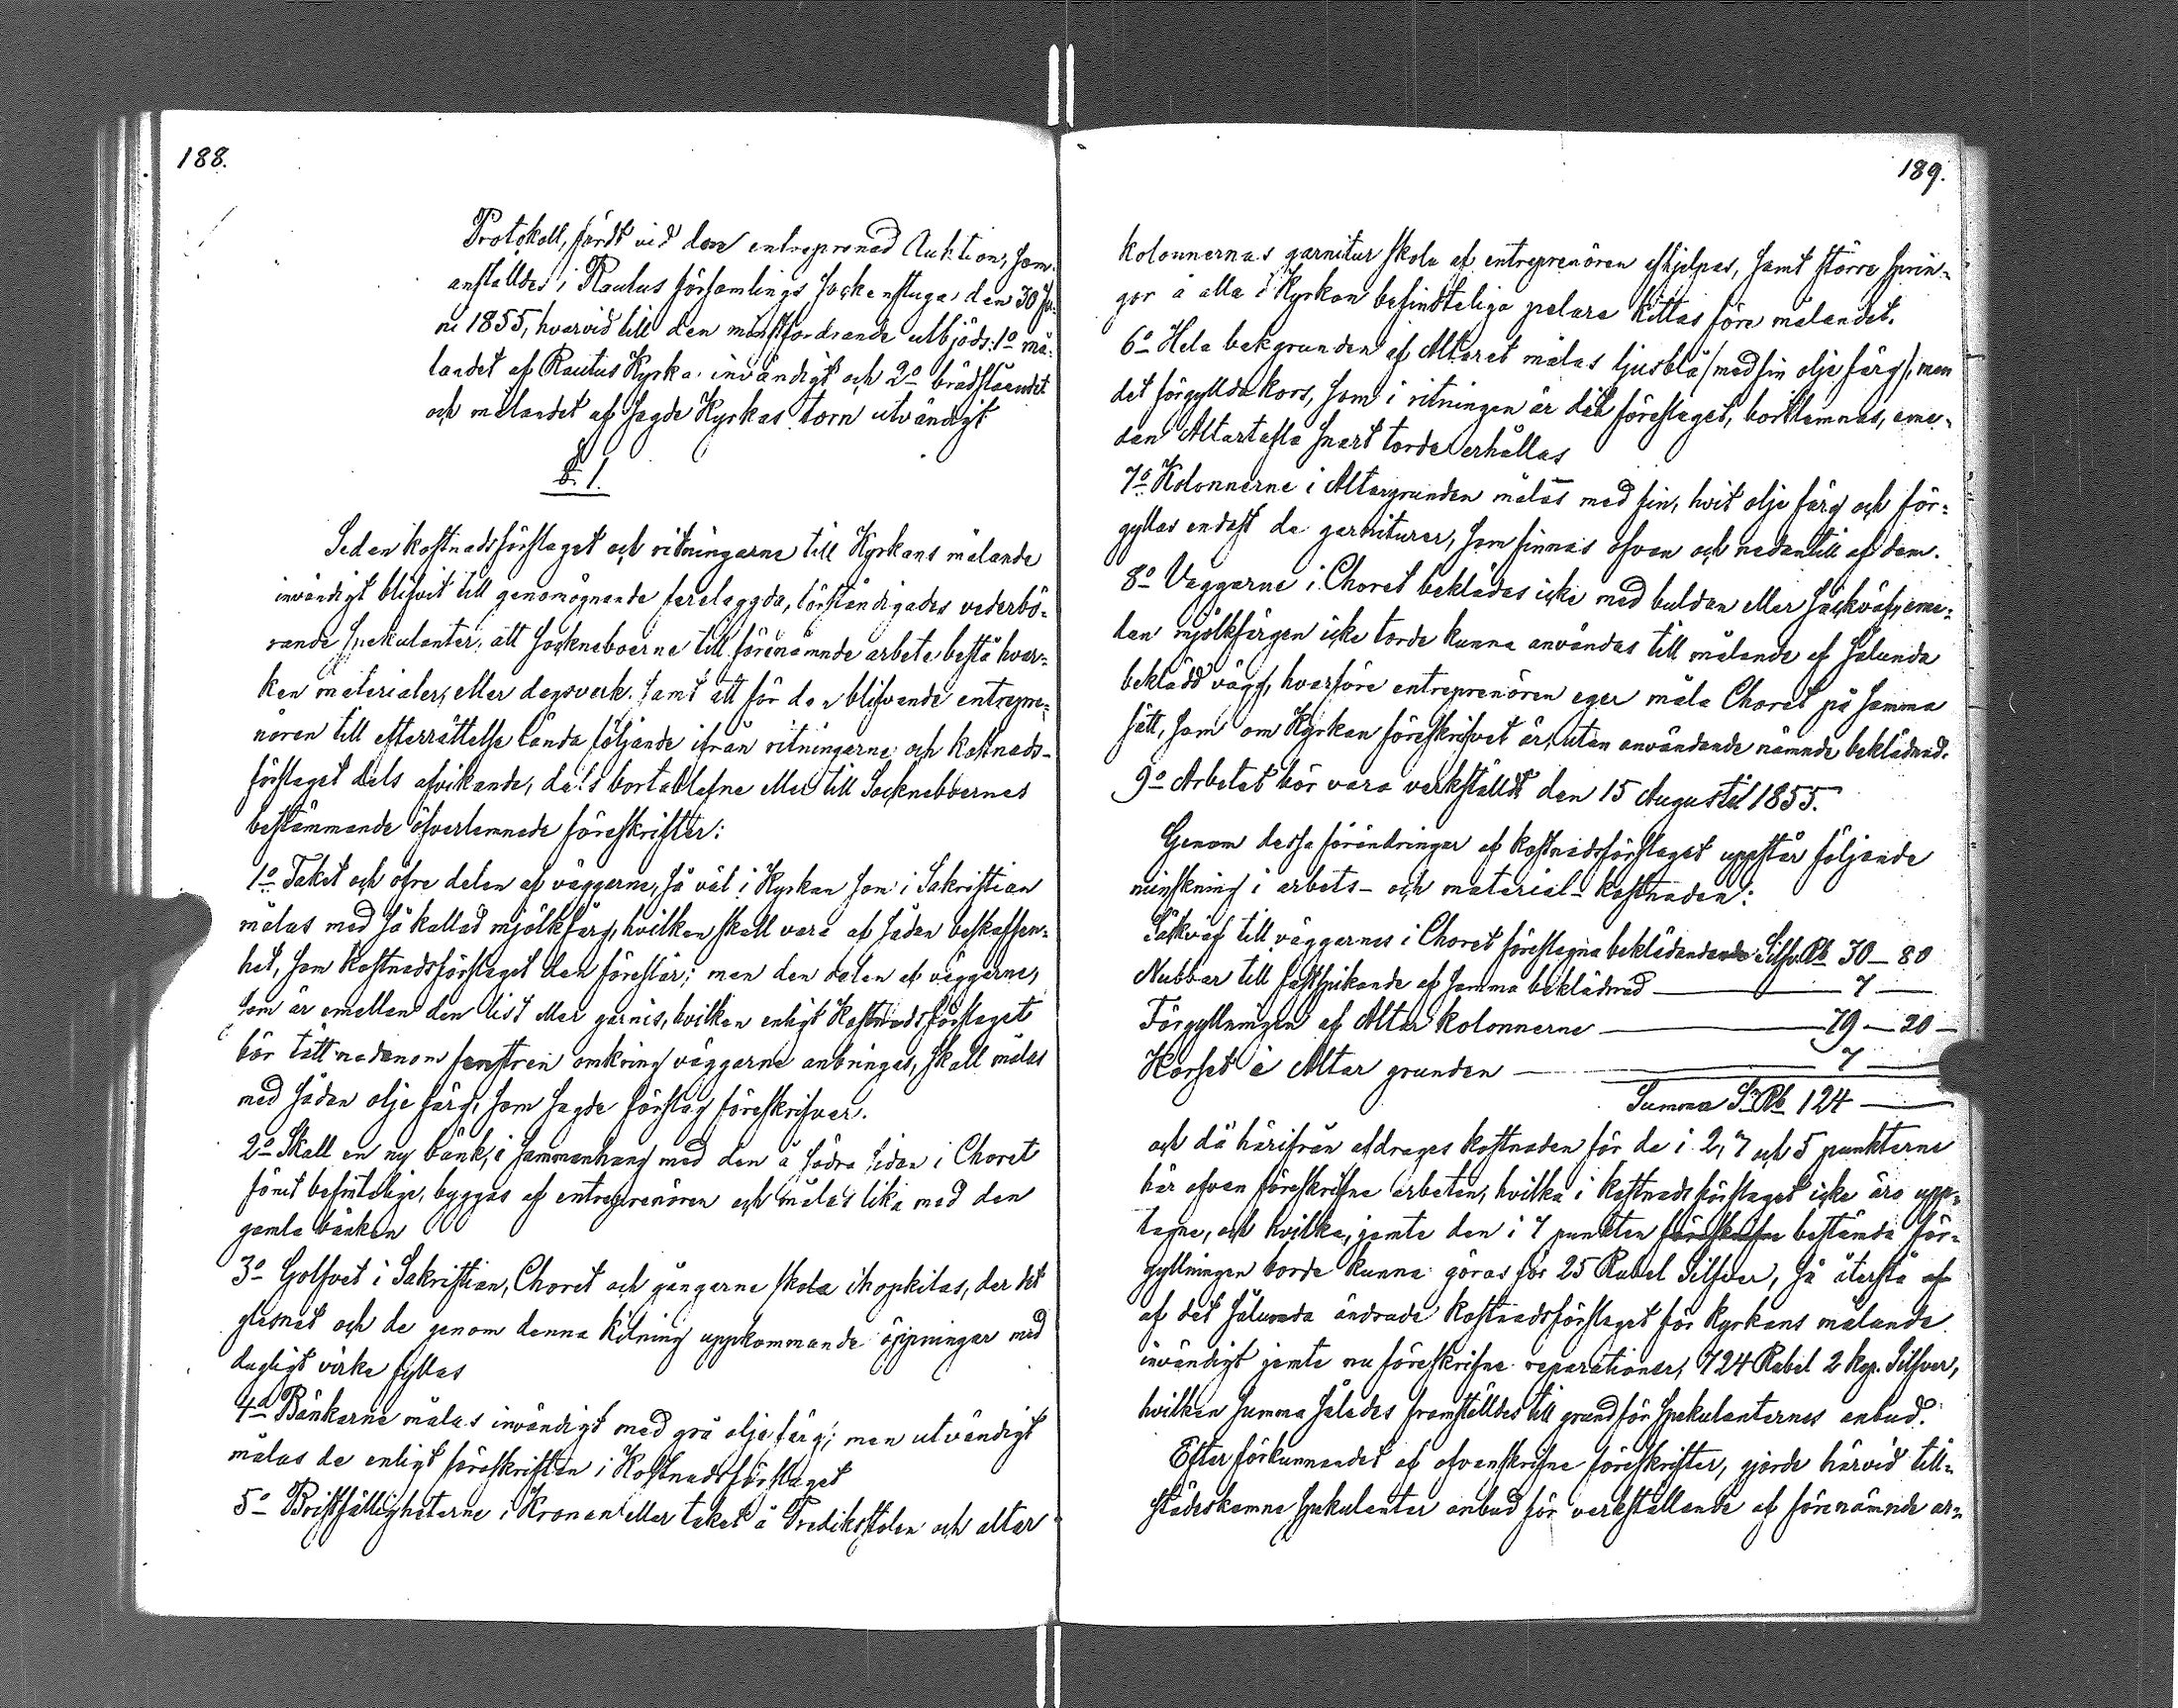 188.
Protokoll, fördt vid den entreprenad Auktion, som
anställdes i Rautus församlings Sockenstuga den 30 Ju-
ni 1855, hvarvid till den minstfordrande utbjöds: 1o må-
landet af Rautus Kyrka invändigt och 2o brädslåendet
och målandet af sagde Kyrkas torn utvändigt
§. 1.
Sedan kostnadsförslaget och ritningarne till Kyrkans målande
invändigt blifvit till genomögnande förelaggda, förständigades vederbö-
rande spekulanter, att sockneboerne till förenämnde arbete bestå hvar-
ken materialer, eller dagsverk, samt att för den blifvande entrepre-
nören till efterrättelse lända följande ifrån ritningarne och kostnads-
förslaget dels afvikande, dels bortablefne eller till Sockneboernes
bestämmande öfverlemnade föreskrifter:
1o Taket och öfre delen af väggarne, så väl i Kyrkan som i Sakristian
målas med så kallad mjölkfärg, hvilken skall vara af sådan beskaffen-
het, som kostnadsförslaget den föreslår; men den delen af väggarne,
som är emellan den list eller garnis, hvilken enligt Kostnadsförslaget
bör tätt nedanom fenstren omkring väggarne anbringas, skall målas
med sådan olje färg, som sagde förslag föreskrifver.
2o Skall en ny bänk, i sammanhang med den å södra sidan i Choret
förut befintelige, byggas af entreprenören och målas lika med den
gamla bänken
3o Golfvet i Sakristian, Choret och gångarne skola ihopkilas, der det
glesnat och de genom denna kilning uppkommande öppningar med
dugligt virke fyllas
4o Bänkarne målas invändigt med grå olje färg; men utvändigt
målas de enligt föreskriften i Kostnadsförslaget
5o Bristfälligheterne i Kronan eller taket å Predikstolen och altar
189.
kolonnernas garnitur skola af entreprenören afhjelpas, samt större sprin-
gor å alla i Kyrkan befinteliga pelare kittas före målandet.
6o Hela bakgrunden af Altaret målas ljusblå (med fin olje färg), men
det förgyllda kors, som i ritningen är dit föreslaget, bortlemnas, eme-
dan Altartafla snart torde erhållas
7o Kolonnerne i Altargrunden målas med fin, hvit olje färg och för-
gyllas endast de garniturer, som finnas ofvan och nedantill af dem.
8o Väggarne i Choret beklädas icke med buldan eller säckväf, eme-
dan mjölkfärgen icke torde kunna användas till målande af sålunda
beklädd vägg, hvarföre entreprenören eger måla Choret på samma
sätt, som om Kyrkan föreskrifvet är, utan användande nämnde beklädnad.
9o Arbetet bör vara verkställdt den 15 Augusti 1855.
Genom dessa förändringar af kostnadsförslaget uppstår följande
minskning i arbets- och material-kostnaden:
Säkväf till väggarnes i Choret föreslagna beklädande Silfv. Rb 30 — 80
Nubbar till fastspikande af samma beklädnad — 7 —
Förgyllningen af Altar kolonnerne — 79 — 20 —
Korset å Altar grunden — 7 —
Summa S. Rb 124 —
och då härifrån afdrages kostnaden för de i 2, 3 och 5 punkterne
här ofvan föreskrifne arbeten, hvilka i kostnadsförslaget icke äro upp-
tagne, och hvilka, jemte den i 7 punkten föreskrifne bestånda för-
gyllningen borde kunna göras för 25 Rubel Silfver, så återstå af
af det sålunda ändrade kostnadsförslaget för kyrkans målande
invändigt jemte nu föreskrifne reparationer, 724 Rubel 2 kop. Silfver,
hvilken summa således framställdes till grund för spekulanternes anbud.
Efter förkunnandet af ofvanskrifne föreskrifter, gjorde härvid till-
städeskomne spekulanter anbud för verkställande af förenämnde ar-